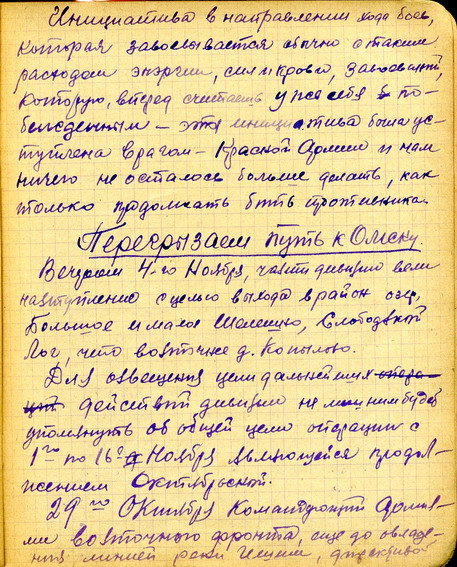 Инициатива в направлении хода боев,
которая завоевывается обычно с таким
расходом энергии, сил и крови, завоевании
которую, вперед считаешь уже себя по-
бежденным – эта инициатива была ус-
туплена врагом – Красной Армии и нам
ничего не осталось больше делать, как
только продолжать бить противника.
Перегрызаем путь к Омску.
Вечером 4-го Ноября, части дивизии вели
наступление с целью выхода в район озер,
Большое и малое Шелегино, Слободской
Лог, что восточнее д. Копылово.
Для освещения цели дальнейших опера-
ций действий дивизии не лишним будет
упомянуть об общей цели операции с
1го по 16е Ноября являющейся продол-
жением Октябрьской.
29го Октября Командующий Армия-
ми восточного фронта, еще до овладе-
ния линией реки Ишим, директивой